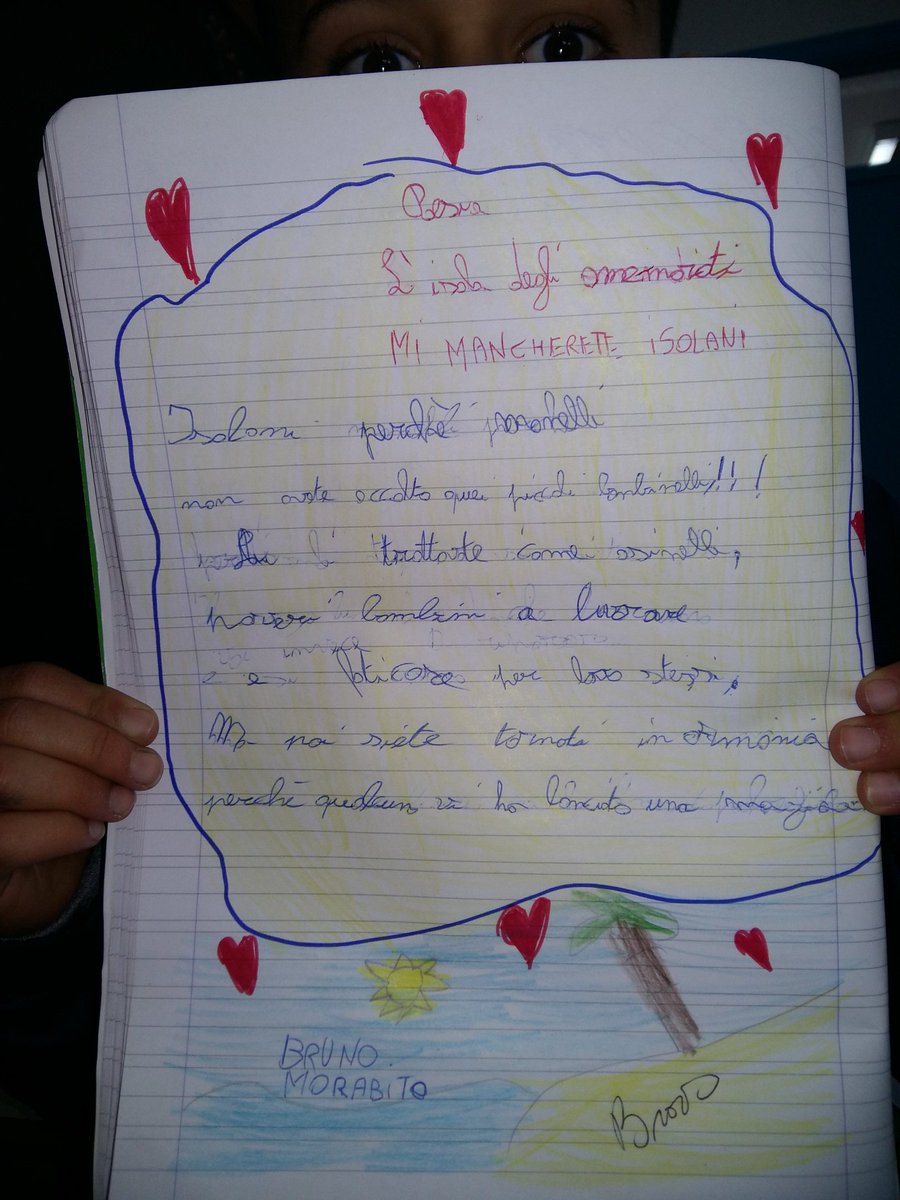 Poesia
L'isola degli smemorati
MI MANCHERETE iSOLANi
Isolani perchè
non avete accolto quei piccoli bambinelli!!!
li trattate come asinelli,
poveri bambini a lavorare
e faticare per loro stessi,
Ma poi siete tornati in armonia
perchè qualcun vi ha lanciato una
BRUNO
MORABITO
Bravo